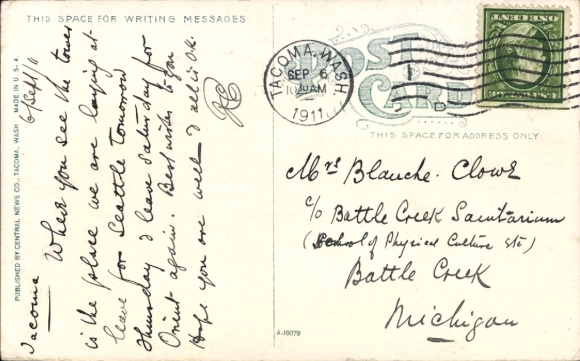 THIS SPACE FOR WRITING MESSAGES
POST
CARD
THIS SPACE FOR ADDRESS ONLY
TACOMA, WASH
SEP 6
10 AM
1911
1
D
PUBLISHED BY CENTRAL NEWS CO., TACOMA, WASH. MADE IN U.S.A.
Tacoma 6/Sept/11
Where you see the tower
is the place we are laying at.
leave for Seattle tomorrow
thursday I leave Saturday for
Orient again. Best wishes to you
Hope you are well - I all is O.K.
Mrs Blanche. Clowe
c/o Battle Creek Sanitarium
(School of Physical Culture etc)
Battle Creek
Michigan
A-18079